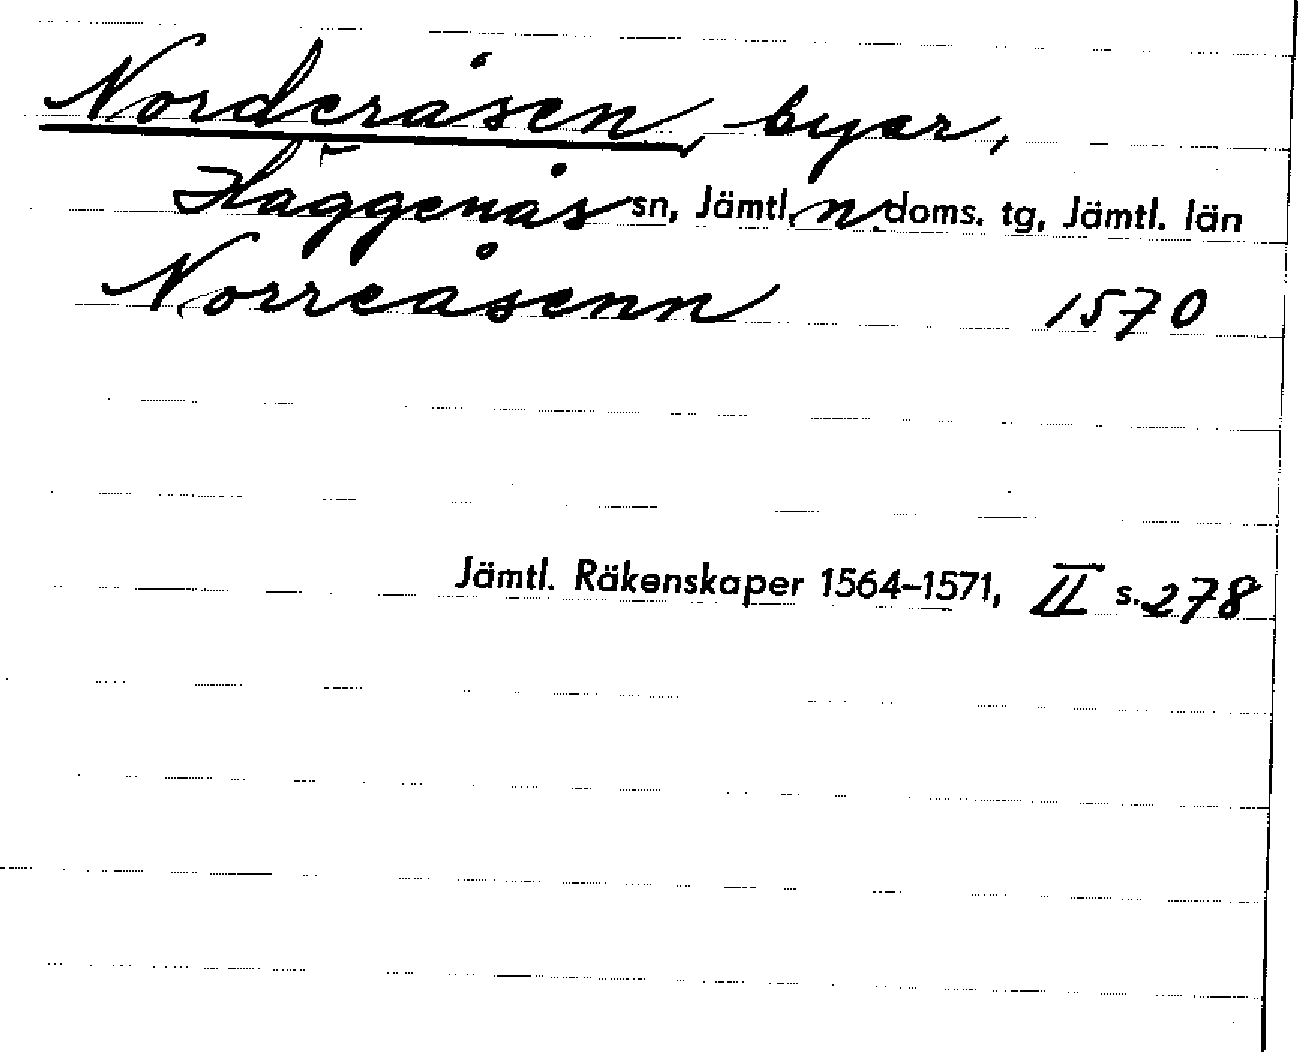 Norderåsen, byar,
Häggenås sn, Jämtl. n. doms. tg, Jämtl. län
Norreåsenn 1570
Jämtl. Räkenskaper 1564–1571, II s. 278